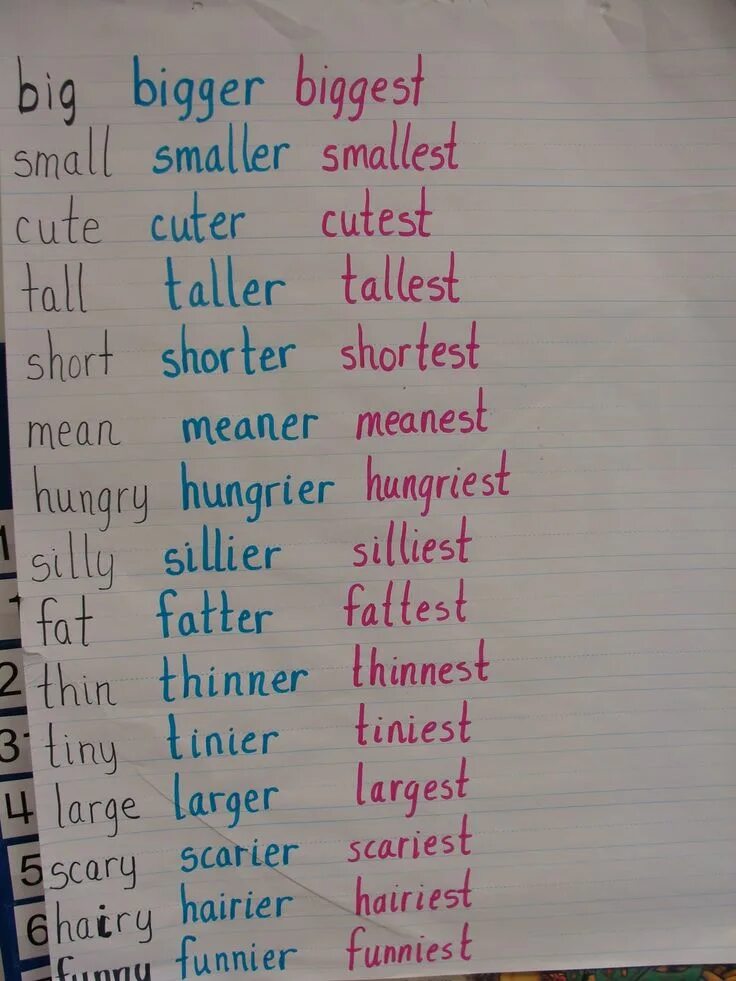 big bigger biggest
small smaller smallest
cute cuter cutest
tall taller tallest
short shorter shortest
mean meaner meanest
hungry hungrier hungriest
silly sillier silliest
fat fatter fattest
thin thinner thinnest
tiny tinier tiniest
large larger largest
scary scarier scariest
hairy hairier hairiest
funny funnier funniest
1
1
2
3
4
5
6